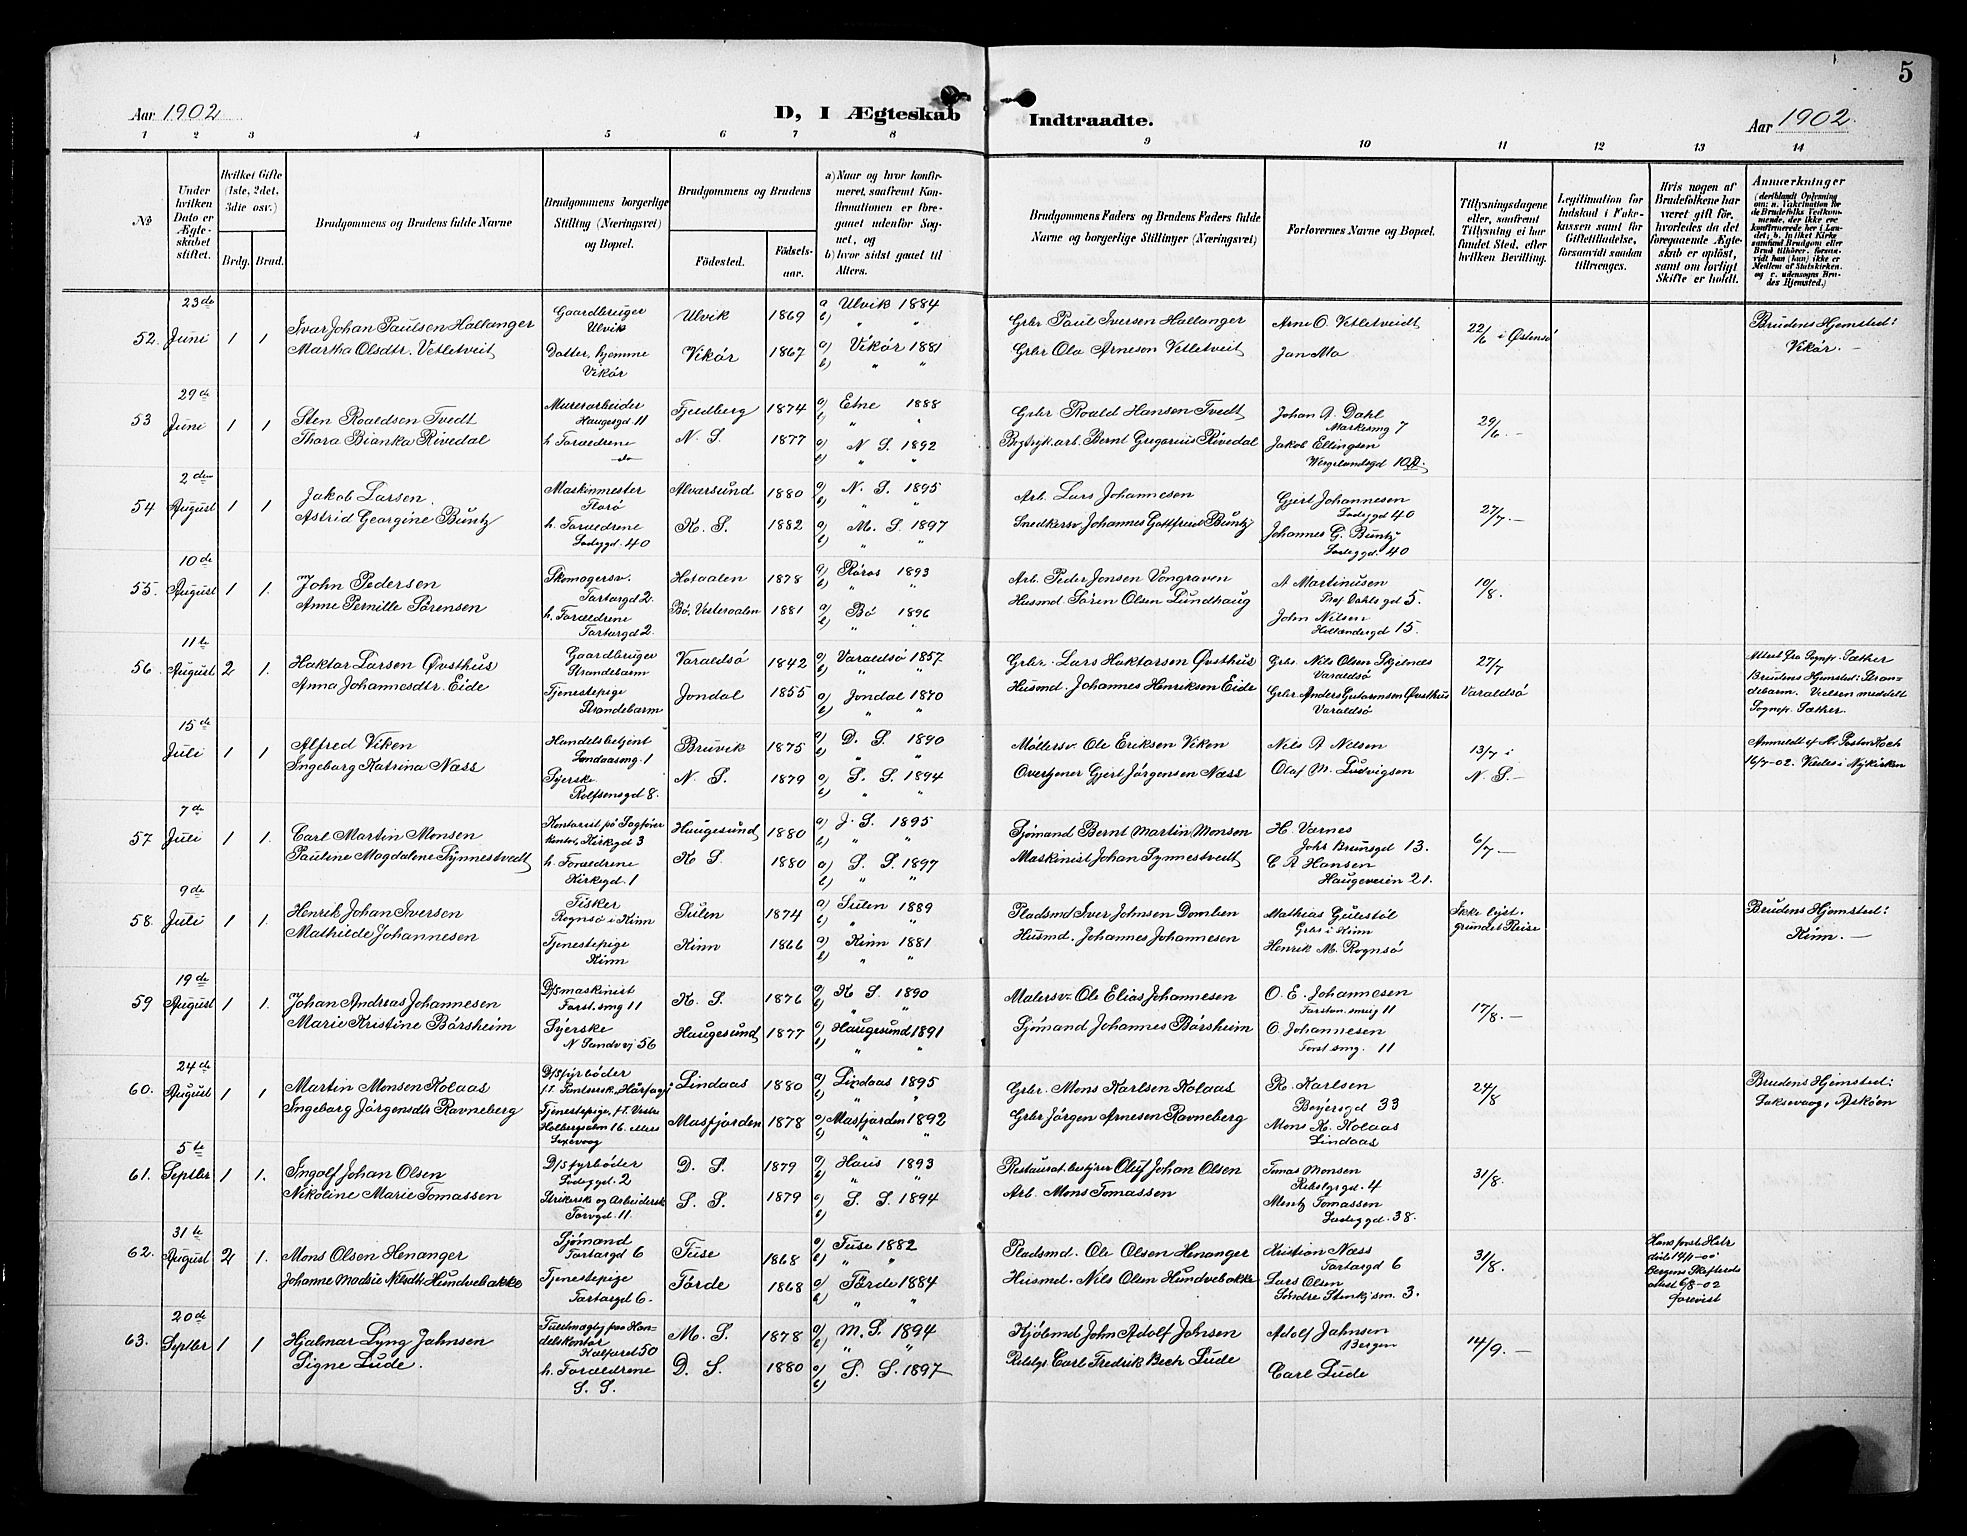 5
Aar 1902
D, I Ægteskab Indtraadte.
Aar 1902.
1 2 3 4 5 6 7 8 9 10 11 12 13 14
No
Under hvilken Dato er Ægteskabet stiftet.
Hvilket Gifte (1ste, 2det, 3die osv.)
Brdg. Brud.
Brudgommens og Brudens fulde Navne
Brudgommens borgerlige Stilling (Næringsvei) og Bopæl.
Brudgommens og Brudens
Fødested. Fødselsaar.
a) Naar og hvor konfirmeret, saafremt Konfirmationen er foregaaet udenfor Sognet, og
b) hvor sidst gaaet til Alters.
Brudgommens Faders og Brudens Faders fulde Navne og borgerlige Stillinger (Næringsvei)
Forlovernes Navne og Bopæl.
Tillysningsdagene eller, saafremt Tillysning ei har fundet Sted, efter hvilken Bevilling.
Legitimation for Indskud i Enkekassen samt for Giftetilladelse, forsaavidt saadan tiltrænges.
Hvis nogen af Brudefolkene har været gift før, hvorledes da det foregaaende Ægteskab er opløst, samt om lovligt Skifte er holdt.
Anmærkninger
(deriblandt Oplysning om: a. Vakcination for de Brudefolks Vedkommende, der ikke ere konfirmerede her i Landet; b. hvilket Kirkesamfund Brudgom eller Brud tilhører, forsaavidt han (hun) ikke er Medlem af Statskirken, og c. udensogns Brudes Hjemsted.)
23de
52. Juni 1 1 Ivar Johan Paulsen Hallanger Gaardbruger Ulvik Ulvik 1869 a) Ulvik 1884 b) " " Grbr Paul Iversen Hallanger Arne O. Vetletveidt 22/6 i Østensø Brudens Hjemsted: Vikør. —
Martha Olsdtr. Vetletveit Datter, hjemme Vikør Vikør 1867 a) Vikør 1881 b) " " Grbr Ola Arneson Vetletveit Jan Mo
29de
53 Juni 1 1 Sten Roaldsen Tvedt Murerarbeider Haugesgd 11 Fjeldberg 1874 a) Etne 1888 b) " " Grbr Roald Hansen Tvedt Johan A. Dahl Markesmg 7 29/6. —
Thora Bianka Rivedal h. Forældrene do N. S. 1877 a) N S. 1892 b) " " Bgtryk.arb. Bernt Gregorius Rivedal Jakob Ellingsen Wergelandsgd 10
2den
54 August 1 1 Jakob Larsen. Maskinmester Storø Alversund 1880 a) N. S. 1895 b) " " Arb. Lars Johannesen Gjert Johannesen Ladeggd 40 27/7. —
Astrid Georgine Buntz h. Forældrene Ladeggd. 40 K. S. 1882 a) M. S. 1897 b) " " Snedkersv. Johannes Gottfried Buntz Johannes G. Buntz Ladeggd. 40
10de
55. August 1 1 John Pedersen Skomagersv. Tartargd 2. 1878 a) Røros 1893 b) " Arb. Peder Jonsen Vongraven A Martinusen Prof Dahls gd 5. 10/8.
Anne Pernille Sørensen h. Forældrene Tartargd 2. Bø, Vesteraalen 1881 a) Bø 1896 b) " " Husmd Søren Olsen Lundhaug John Nilsen Hollendergd 15.
11te
56. August 2 1. Haktor Larsen Øvsthus Gaardbruger Strandebarm Varaldsø 1842 a) Varaldsø 1857 b) " " Grbr. Lars Haktorsen Øvsthus Grbr. Nils Olsen Skjelnæs Varaldsø 27/7 Varaldsø Attest fra Sognep. Sæther Brudens Hjemsted: Strandebarm. Vielsen meddelt Sognep. Sæther.
Anna Johannesdtr. Eide Tjenestepige Strandebarm Jondal 1855 a) Jondal 1870 b) " " Husmd. Johannes Henriksen Eide Grbr Anders Øvsthus Varaldsø
15de
Juli 1 1 Alfred Viken Handelsbetjent 1 Bruvik 1875 a) D. S. 1890 b) " " Møllersv. Ole Eriksen Viken Nils A Nilsen 13/7 i N. S. — Anmeldt af Hr. Pastor Koch 16/7-02. Viedes i Nykirken
Ingeborg Katrina Næss Syerske Rolfsensgd 8. N. S. 1879 a) S. S. 1894 b) " " Overtjener Gjert Jörgensen Næss Olaf M. Ludvigsen
7de
57 Juli 1 1. Carl Martin Monsen Kontorist på Sagførerkontor, Kirkegd 3 Haugesund 1880 a) J. S. 1895 b) " " Sjömand Bernt Martin Monsen H. Varnes Johs Brunsgd 13. 6/7 —
Pauline Magdalene Synnestvedt h. Forældrene Kirkegd. 1 K S. 1880 a) S. S. 1897 b) " " Maskinist Johan Synnestvedt C A Hansen Haugeveien 21.
9de
58. Juli 1 1. Henrik Johan Iversen Fisker Rognsø i Kinn Sulen 1874 a) Sulen 1889 b) " " Pladsmd Iver Johnsen Domben Mathias Gulestöl Grbr i Kinn Ikke lyst grundet Reise Brudens Hjemsted: Kinn. —
Mathilde Johannesen Tjenestepige Kinn Kinn 1866 a) Kinn 1881 b) " " Husmd. Johannes Johannesen Henrik M. Rognsø
19de
59 August 1 1. Johan Andreas Johannesen D/Smaskinist Forst.smg 11 K. S. 1876 a) K S. 1890 b) " " Malersv. Ole Elias Johannesen O. E. Johannesen Forstan.smug 11 17/8. —
Marie Kristine Børsheim Syerske N Sandvvj 56 Haugesund 1877 a) Haugesund 1891 b) " " Sjömand Johannes Børsheim O. Johannesen Forst smg. 11
24de
60. August 1 1 Martin Monsen Kolaas D/Sfyrbøder Lindaas 1880 a) Lindaas 1895 b) " " Grbr. Mons Karlsen Kolaas R. Karlsen Beyersgd 33 24/8 Brudens Hjemsted: Laksevaag, Askøen
Ingeborg Jörgensdtr Ravneberg Tjenestepige, Masfjorden 1878 a) Masfjorden 1892 b) " " Grbr Jörgen Arnesen Ravneberg Mons K. Kolaas Lindaas
5te
61. Septbr 1 1. Ingolf Johan Olsen D/Sfyrbøder Ladeggd. 2 D. S. 1879 a) Haus 1893 b) " " Restaurat.bestyrer Oluf Johan Olsen Tomas Monsen Rebslgrgd. 4 31/8.
Nikoline Marie Tomassen Torvgd. 11 S. S. 1879 a) S. S. 1894 b) Arb. Mons Tomassen Mentz Tomassen Ladeggd. 38.
31te
62. August 2 1. Mons Olsen Henanger Sjömand Tartargd 6 Fuse 1868 a) Fuse 1882 b) " " Pladsmd. Ole Olsen Henanger Kristian Næss Tartargd 6 31/8. Hans forste Hstr døde 14/1-00 Bergens Skifterets attest 6/8-02 forevist
Johanne Madsie Nilsdtr Hundvebakke Tjenestepige Tartargd 6. Førde 1868 a) Førde 1884 b) " " Husmd. Nils Olsen Hundvebakke Lars Olsen Søndre Stenkj.sm. 3.
20de
63. Septbr 1 1 Hjalmar Lyng Jahnsen Fuldmægtig paa Handelskontor Kalfaret 50 M. S. 1878 a) M. S. 1894 b) " " Kjølemd John Adolf Johsen Adolf Jahnsen Bergen 14/9. —
Signe Lude. h. Forældrene S. S. D. S. 1880 a) S. S. 1897 b) Rebslgr Carl Fredrik Bech Lude Carl Lude